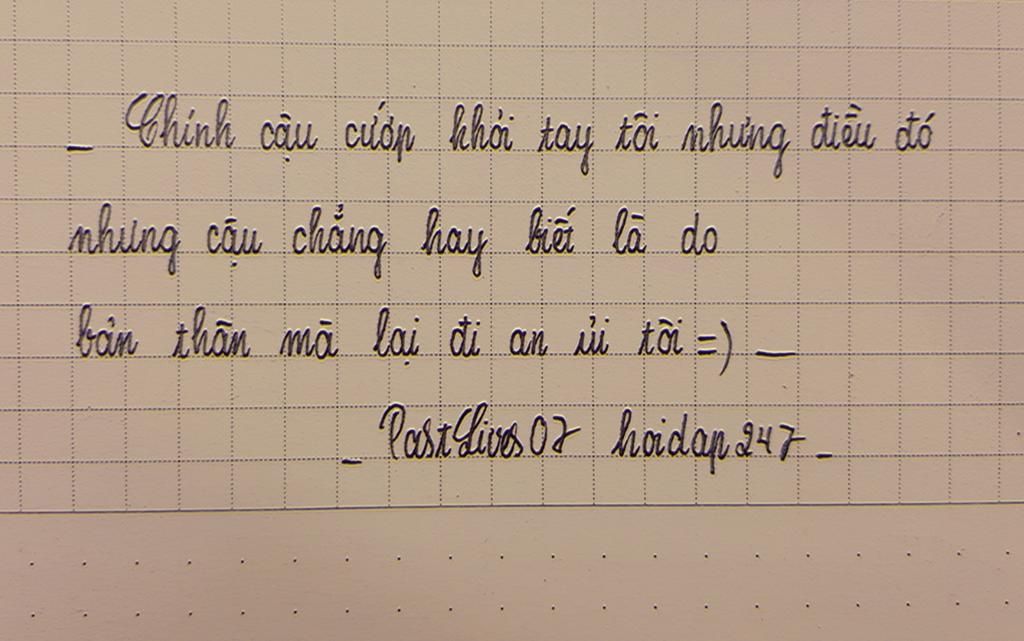 _ Chính cậu cướp khỏi tay tôi những điều đó
nhưng cậu chẳng hay biết là do
bản thân mà lại đi an ủi tôi =) _
_ PastLives07 hoidap247 _